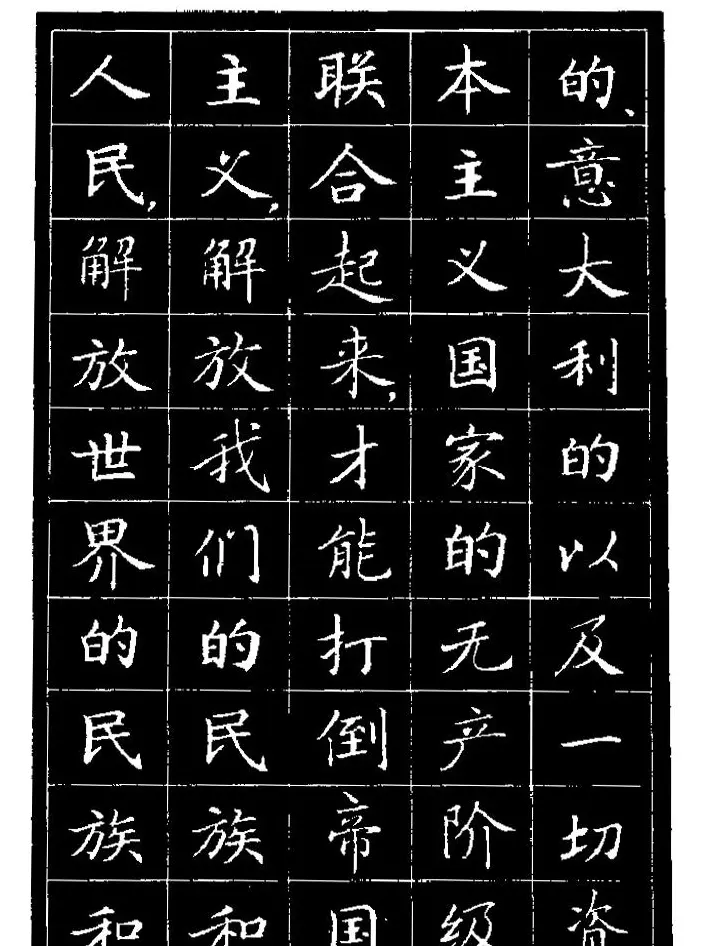 的、意大利的以及一切资
本主义国家的无产阶级
联合起来，才能打倒帝国
主义，解放我们的民族和
人民，解放世界的民族和